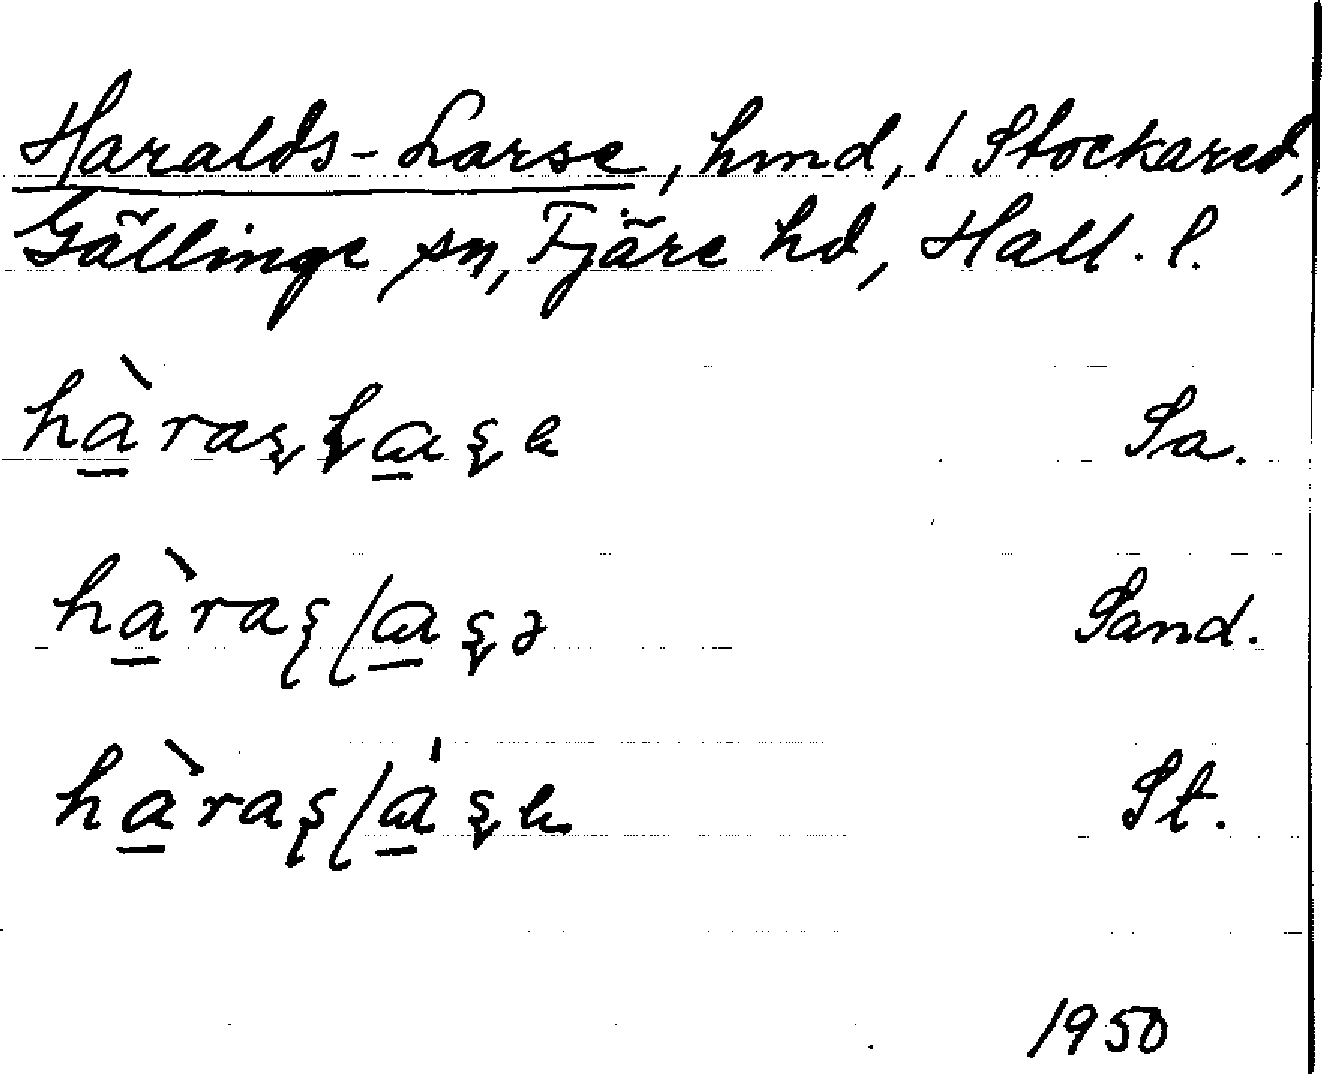 Haralds-Larse, hmd, 1 Stockared,
Gällinge sn, Fjäre hd, Hall. l.
Sa.
Sand.
St.
1950